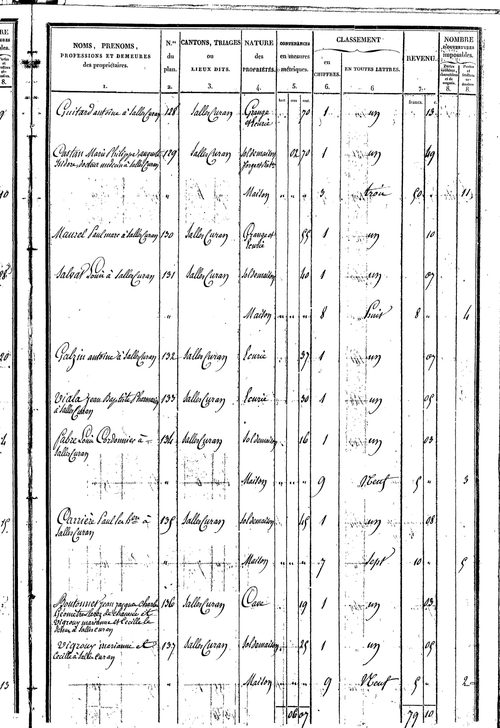 NOMS, PRENOMS, PROFESSIONS ET DEMEURES des propriétaires. N.os du plan. CANTONS, TRIAGES OU LIEUX DITS. NATURE des PROPRIÉTÉS. CONTENANCES en mesures métriques. CLASSEMENT en CHIFFRES. EN TOUTES LETTRES. REVENU. NOMBRE D'OUVERTURES imposables.
1. 2. 3. 4. 5. 6. 6 7. 8. 8.
francs. c.
Guitard antoine à Salles Curan 128 Salles Curan Grange et Ecurie 70 1 un 13
Marie Philippe auguste docteur médecin à Salles Curan 129 Salles Curan Sol de maison 02 70 1 un 49
" " Maison " " " 3 trois 50 " 11
Maurel Paul marc à Salles Curan 130 Salles Curan Grange et Ecurie 55 1 un 10
Salvat Louis à Salles Curan 131 Salles Curan Sol de maison 40 1 un 07
" Maison " " " 8 huit 8 " 4
Galzin antoine à Salles Curan 132 Salles Curan Ecurie 37 1 un 07
Viala Jean Baptiste à Salles Curan 133 Salles Curan Ecurie 30 1 un 05
Fabre Louis Cordonnier à Salles Curan 134 Salles Curan Sol de maison 16 1 un 03
" Maison " " " 9 Neuf 5 " 3
Carrière Paul à Salles Curan 135 Salles Curan Sol de maison 45 1 un 08
" Maison " " " 7 Sept 10 " 5
Boutonnet Jean Jacques Charles Géomètre Vigroux marianne et Cecille à Salles Curan 136 Salles Curan Cave 19 1 un 03
Vigroux marianne et Cecille à Salles Curan 137 Salles Curan Sol de maison 25 1 un 05
" Maison " " " 9 Neuf 5 " 2
06 07 79 10